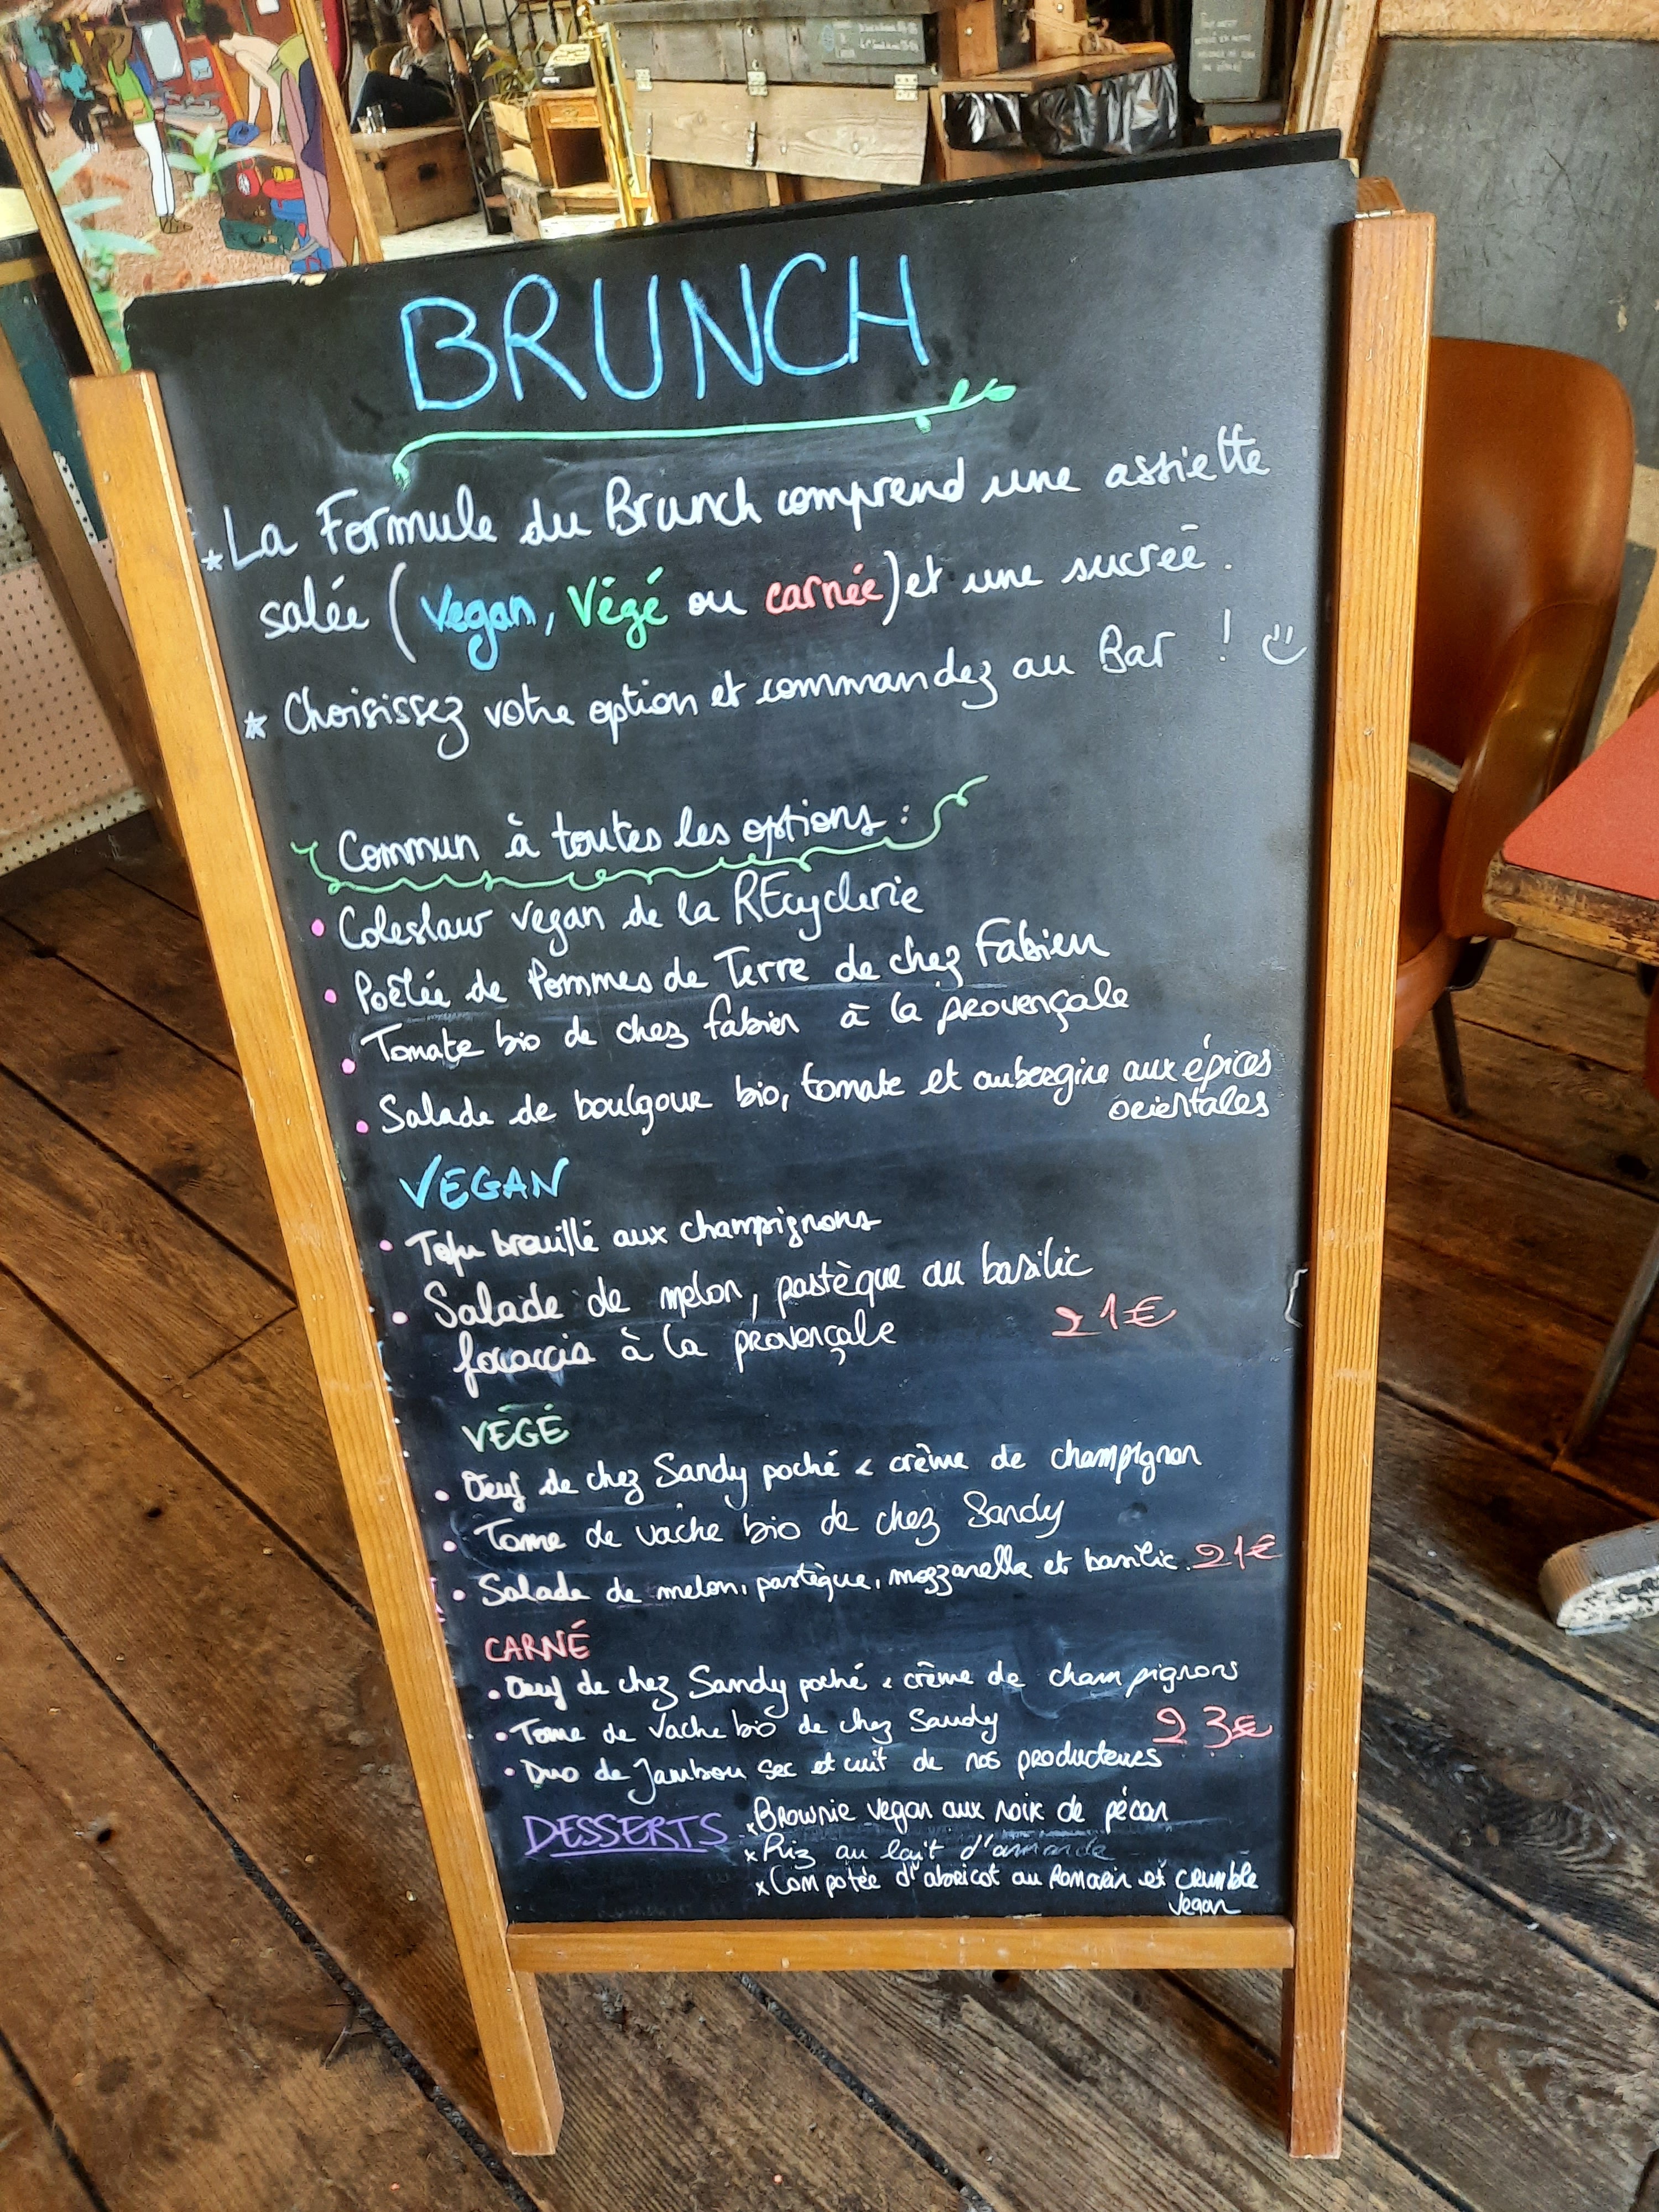 BRUNCH
* La Formule du Brunch comprend une assiette
salée (Vegan, Végé ou carnée) et une sucrée.
* Choisissez votre option et commandez au Bar ! :)
Commun à toutes les options :
• Coleslaw vegan de la REcyclerie
• Poêlée de Pommes de Terre de chez Fabien
• Tomate bio de chez fabien à la provençale
• Salade de boulgour bio, tomate et aubergine aux épices
orientales
VEGAN
• Tofu brouillé aux champignons
• Salade de melon, pastèque au basilic
focaccia à la provençale 21€
VÉGÉ
• Oeuf de chez Sandy poché & crème de champignon
• Tome de vache bio de chez Sandy
• Salade de melon, pastèque, mozzarella et basilic. 21€
CARNÉ
• Oeuf de chez Sandy poché & crème de champignons
• Tome de vache bio de chez Sandy 23€
• Duo de Jambon sec et cuit de nos producteurs
DESSERTS x Brownie vegan aux noix de pécan
x Riz au lait d'amande
x Compotée d'abricot au Romarin et crumble
vegan